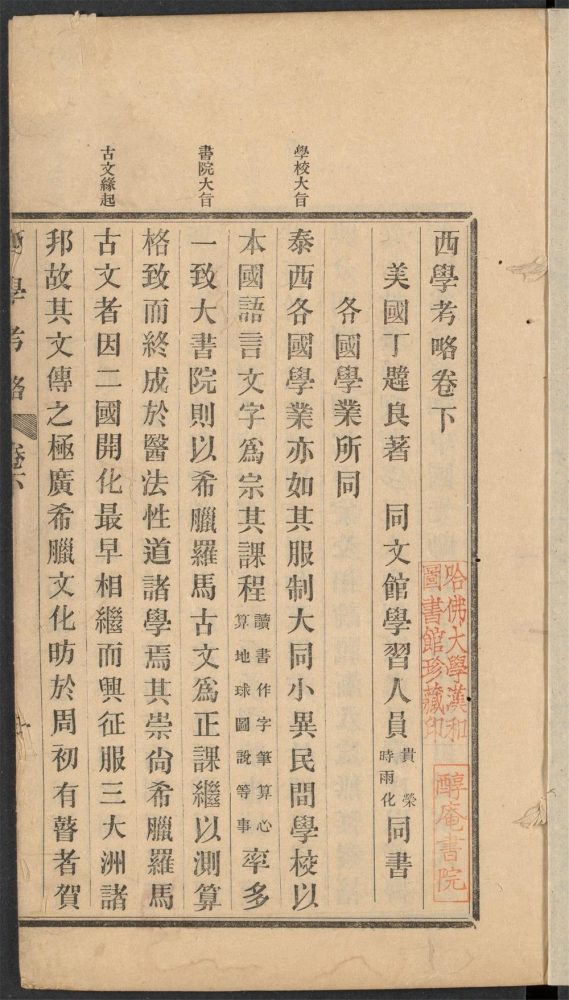 西學考略卷下
美國丁韙良著　同文館學習人員貴榮時雨化同書
各國學業所同
學校大旨
泰西各國學業亦如其服制大同小異民間學校以
本國語言文字爲宗其課程讀書作字筆算心算地球圖說等事率多
書院大旨
一致大書院則以希臘羅馬古文爲正課繼以測算
格致而終成於醫法性道諸學焉其崇尙希臘羅馬
古文緣起
古文者因二國開化最早相繼而興征服三大洲諸
邦故其文傳之極廣希臘文化昉於周初有瞽者賀
西學考略
卷下
哈佛大學漢和
圖書館珍藏印
醇庵書院